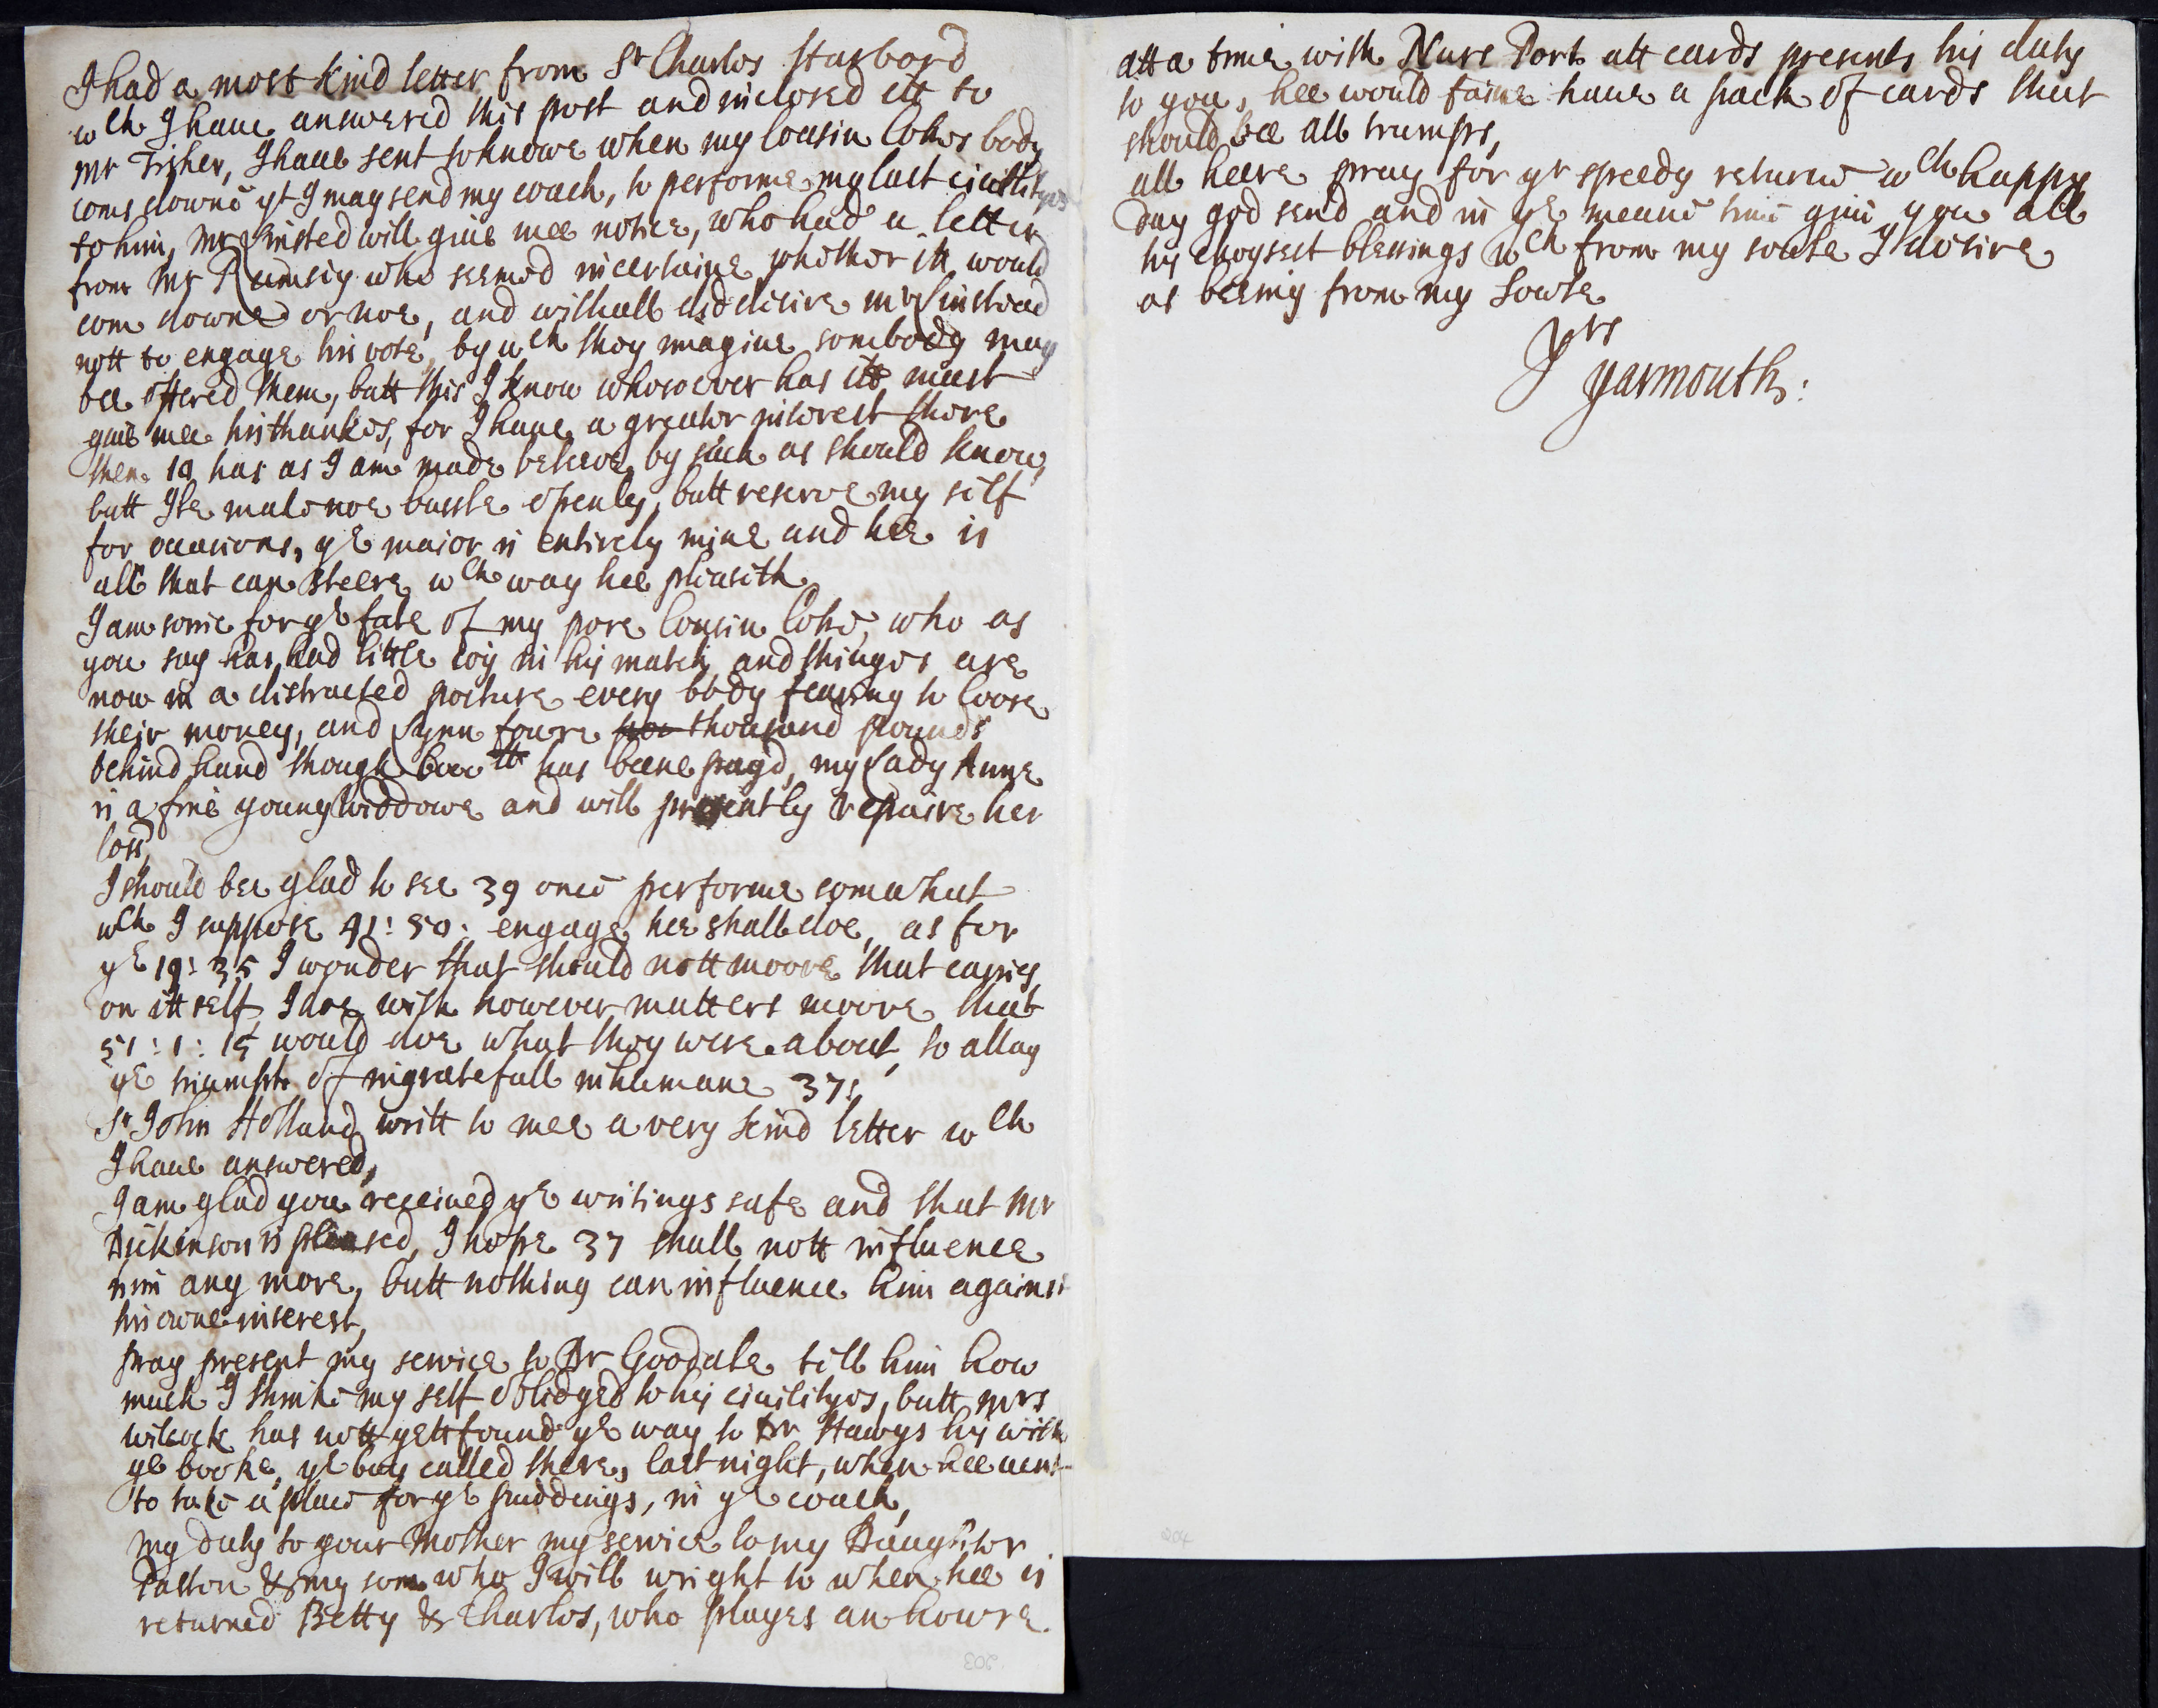 I had a most kind letter from Sr Charlos Harbord
wch I haue answered this post and inclosed itt to
Mr Fisher, I haue sent to knowe when my Cousin Cokes body
coms downe yt I may send my coach, to performe my last ciuilityes
to him, Mr Linsted will giue mee notice, who had a letter
from Mr Rumsey who seemed incertaine whether itt would
com downe or noe, and withall did desire mr Linstead
nott to engage his vote, by wch they imagine sombody may
bee offered them, butt this I know whosoever has itt must
giue mee his thankes, for I haue a greator interest there
then 19 has as I am made beleeve by such as should know,
butt Ile make noe bussle openly, butt reserve my self
for occasions, ye maior is entirely mine and hee is
all that can steere wch way hee pleaseth
I am sorrie for ye fate of my pore Cousin Coke, who as
you say has had little ioy in his match, and thinges are
now in a distracted posture every body fearing to loose
their money, and Lynn foure thousand pounds
behind hand though itt has beene payd, my Lady Anne
is a fine young widdowe and will presently repaire her
loss,
I should bee glad to see 39 once performe somwhat
wch I suppose 41: 50: engage hee shall doe, as for
ye 19: 35 I wonder that should nott moove that caries
on itt self, I doe wish however matters moove that
51: 1: 15 would doe what they were about, to allay
ye triumph of ingratefull inhumane 37:
Sr John Holland writt to mee a very kind letter wch
I haue answered,
I am glad you received ye writings safe and that Mr
Dickinson is pleased, I hope 37 shall nott influence
him any more, butt nothing can influence him against
his owne interest,
pray present my service to Dr Goodale tell him how
much I thinke my self oblidged to his ciuilityes, butt Mrs
wilcock has nott yett found ye way to Dr Hawys his with
ye booke, ye boy called there, last night, when hee went
to take a place for ye puddings, in ye coach,
My duty to your Mother my service to my Daughter
Paston & my son who I will wright to when hee is
returned Betty & Charlos, who playes an howre
att a time with Nurs Port att cards presents his duty
to you, hee would faine haue a pack of cards that
should bee all trumps,
all heere pray for yr speedy returne wch happy
day god send and in ye meane time giue you all
his choysest blessings wch from my soule I desire
as beeing from my Sowle
Yrs
Yarmouth:
204
203